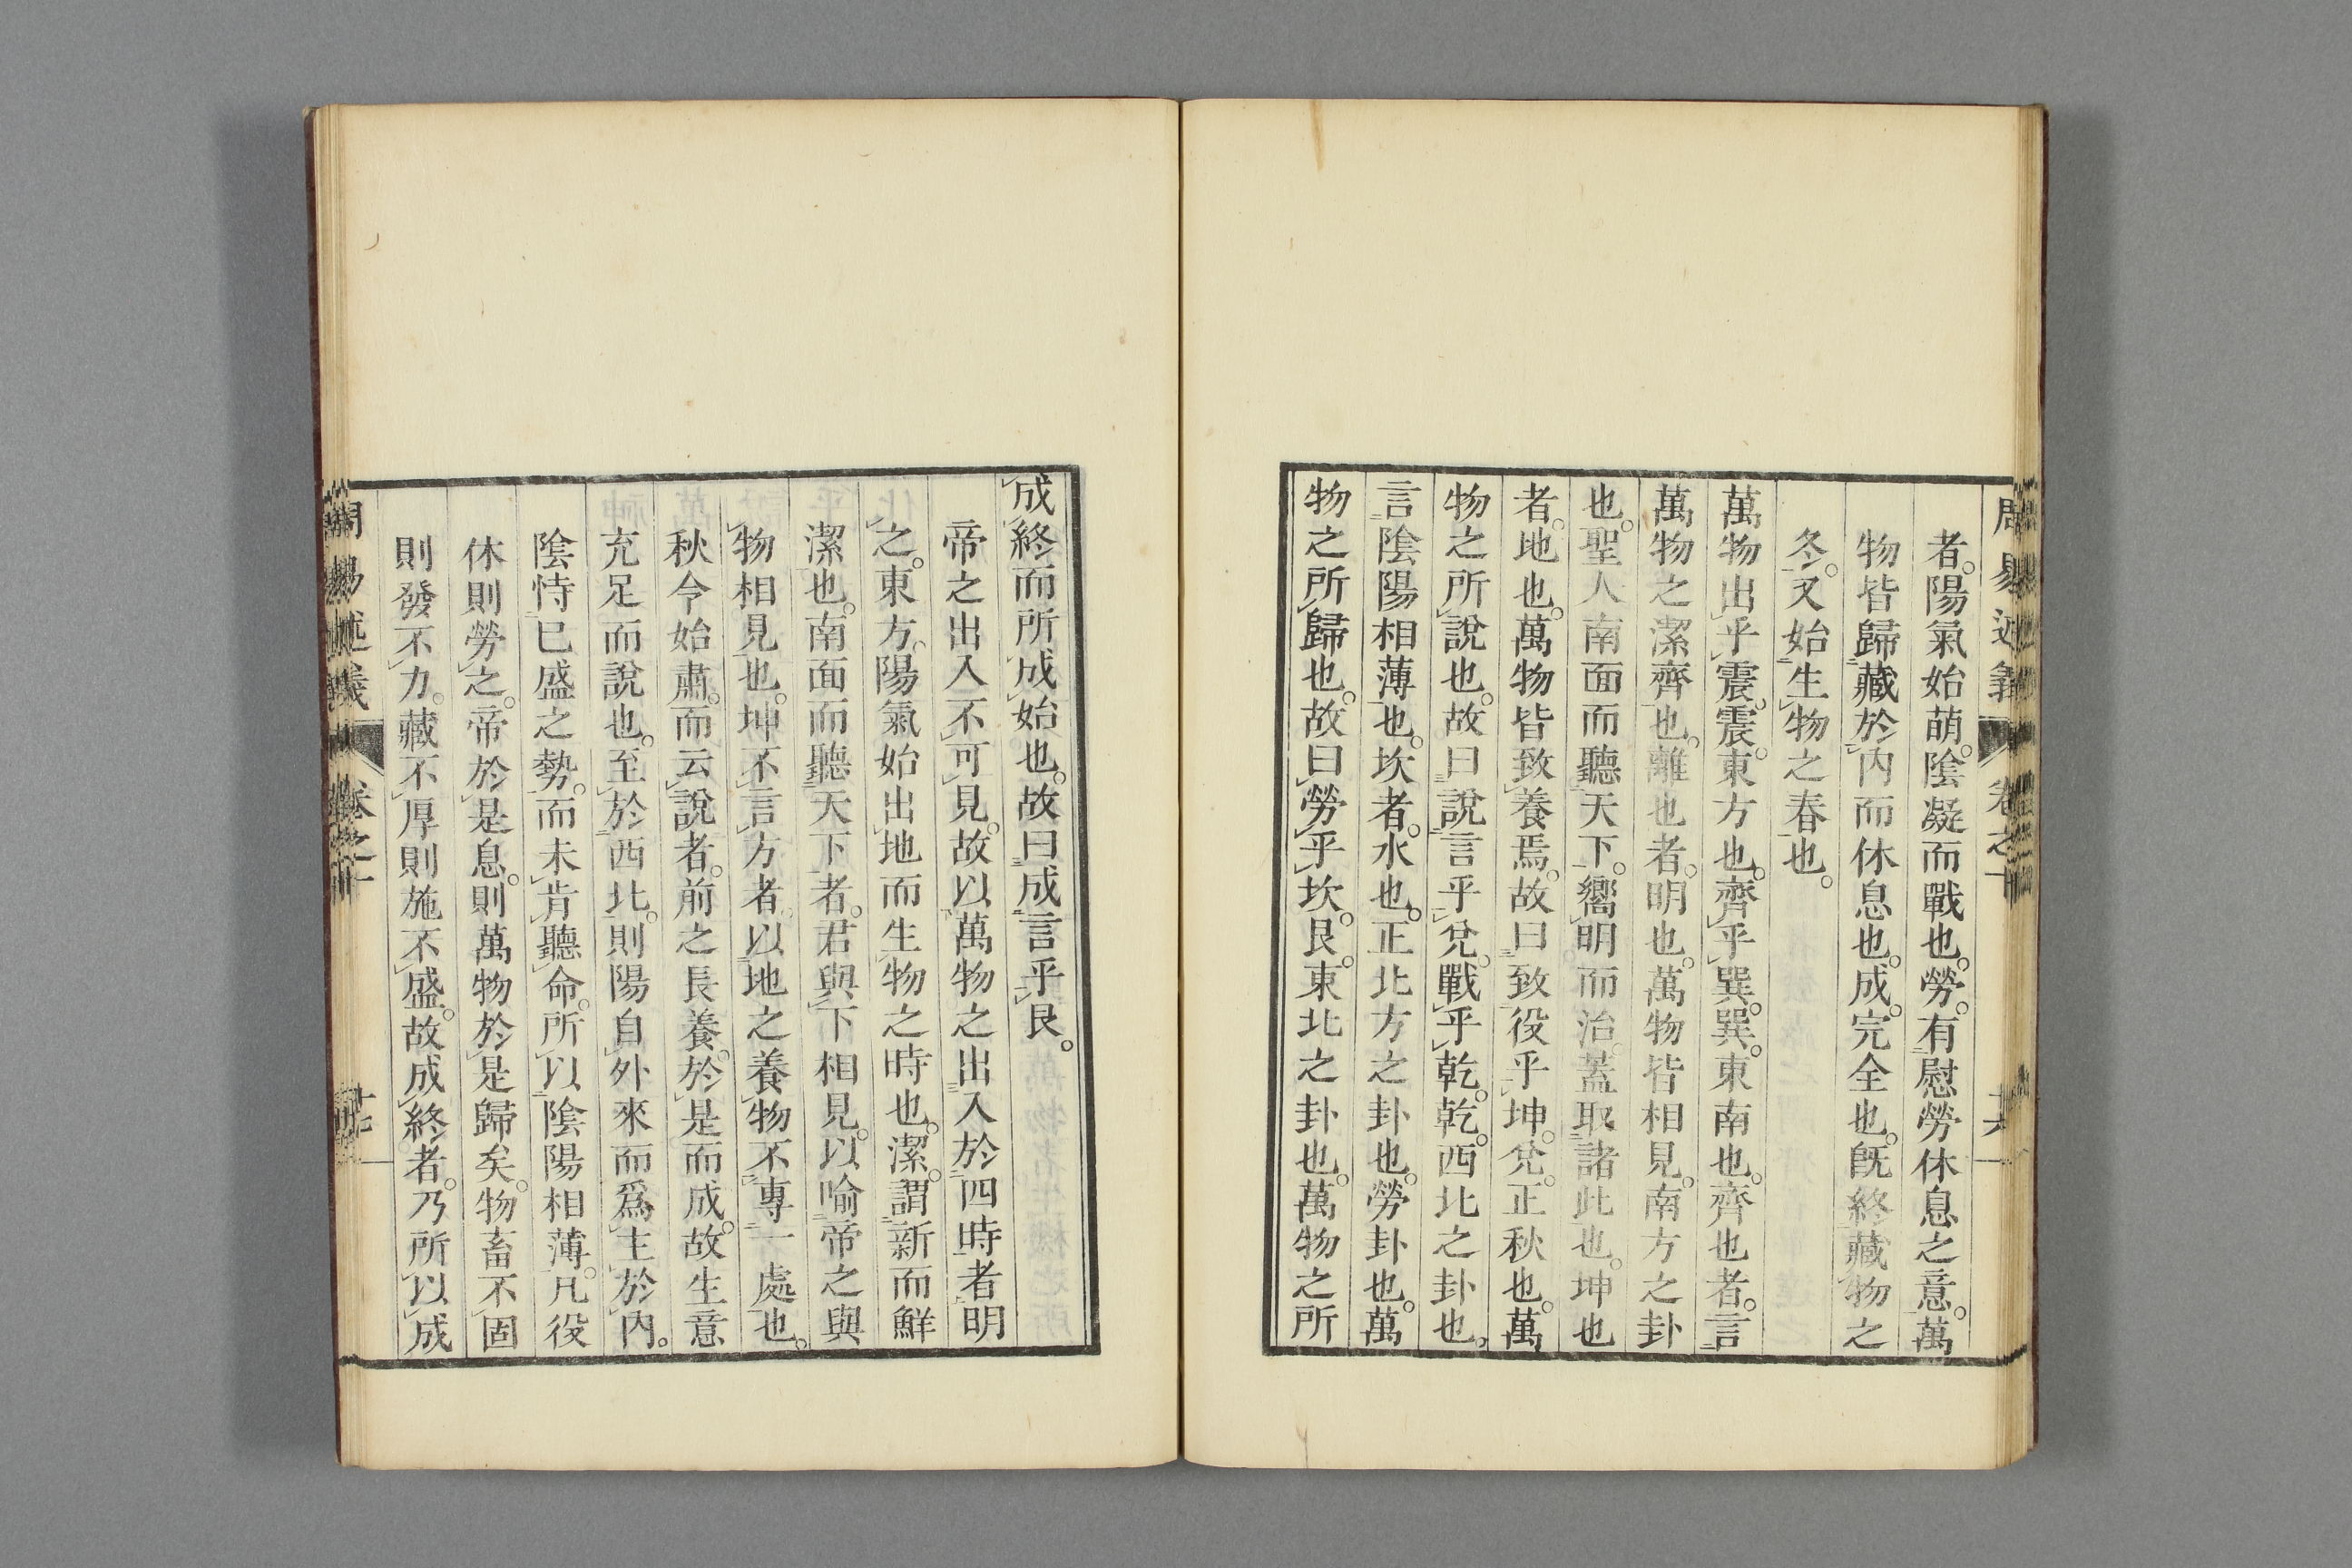 者。陽氣始萌。陰凝而戰也。勞。有慰勞休息之意。萬
物皆歸藏於內而休息也。成。完全也。既終藏物之
冬。又始生物之春也。
萬物出乎震。震。東方也。齊乎巽。巽。東南也。齊也者。言
萬物之潔齊也。離也者。明也。萬物皆相見。南方之卦
也。聖人南面而聽天下。嚮明而治。蓋取諸此也。坤也
者。地也。萬物皆致養焉。故曰致役乎坤。兌。正秋也。萬
物之所說也。故曰說言乎兌。戰乎乾。乾。西北之卦也。
言陰陽相薄也。坎者。水也。正北方之卦也。勞卦也。萬
物之所歸也。故曰勞乎坎。艮。東北之卦也。萬物之所
成終而所成始也。故曰成言乎艮。
帝之出入不可見。故以萬物之出入於四時者明
之。東方。陽氣始出地而生物之時也。潔。謂新而鮮
潔也。南面而聽天下者。君與下相見。以喻帝之與
物相見也。坤不言方者。以地之養物不專一處也。
秋令始肅。而云說者。前之長養。於是而成。故生意
充足而說也。至於西北。則陽自外來而爲主於內。
陰恃已盛之勢。而未肯聽命。所以陰陽相薄。凡役
休則勞之。帝於是息。則萬物於是歸矣。物畜不固
則發不力。藏不厚則施不盛。故成終者。乃所以成
周易述義
卷之十